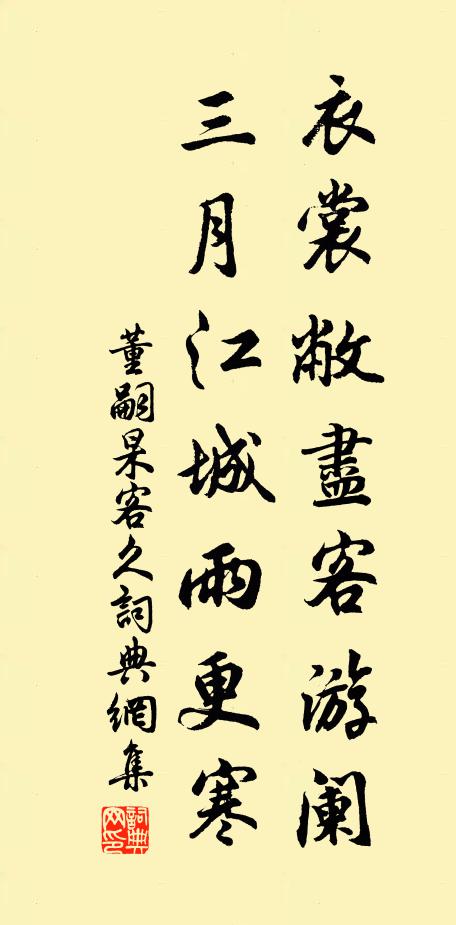 衣裳敝盡客游阑
三月江城雨更寒
董嗣杲客久詞典網集
詞典网印